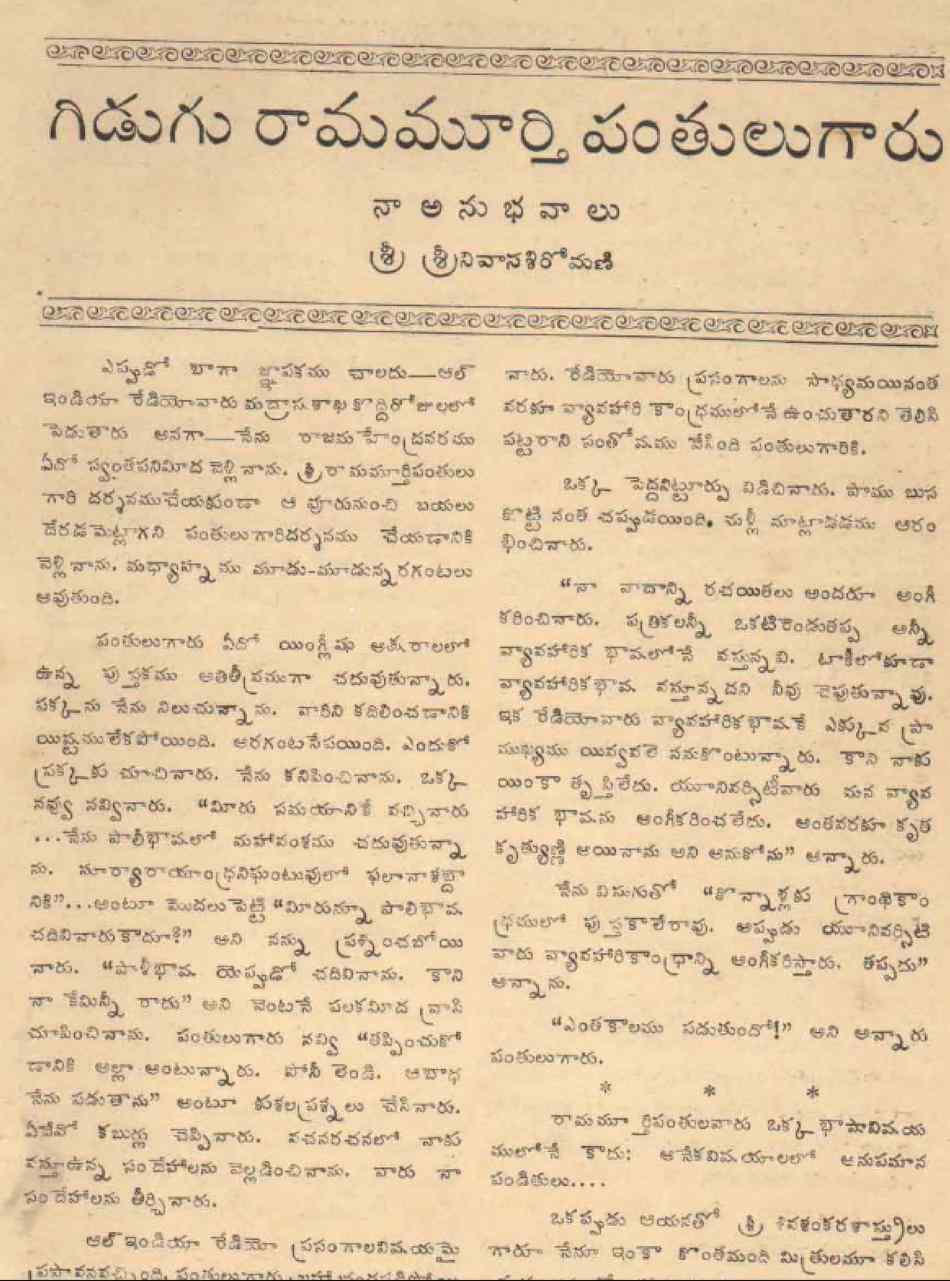 గిడుగు రామమూర్తి పంతులుగారు
నా అనుభవాలు
శ్రీ శ్రీనివాసశిరోమణి
ఎప్పుడో బాగా జ్ఞాపకము చాలదు—ఆల్
ఇండియా రేడియోవారు మద్రాసుశాఖ కొద్దిరోజులలో
పెడుతారు అనగా—నేను రాజమహేంద్రవరము
ఏదో స్వంతపనిమీద వెళ్లినాను. శ్రీరామమూర్తిపంతులు
గారి దర్శనముచేయకుండా ఆ వూరునుంచి బయలు
దేరడమెట్లాగని పంతులుగారిదర్శనము చేయడానికి
వెళ్లినాను. మధ్యాహ్నము మూడు-మూడున్నరగంటలు
అవుతుంది.
పంతులుగారు ఏదో యింగ్లీషు అక్షరాలలో
ఉన్న పుస్తకము అతితీవ్రముగా చదువుతున్నారు.
పక్కను నేను నిలుచున్నాను. వారిని కదిలించడానికి
యిష్టములేకపోయింది. అరగంటసేపయింది. ఎందుకో
ప్రక్కకు చూచినారు. నేను కనిపించినాను. ఒక్క
నవ్వు నవ్వినారు. “మీరు సమయానికే వచ్చినారు
...నేను పాలీభాషలో మహావంశము చదువుతున్నా
ను. సూర్యారాయాంధ్రనిఘంటువులో ఫలానాశబ్దా
నికి”...అంటూ మొదలుపెట్టి “మీరున్నూ పాలిభాష
చదివినారుకాదూ?” అని నన్ను ప్రశ్నించబోయి
నారు. “పాళీభాష యెప్పుడో చదివినాను. కాని
నా కేమిన్నీ రాదు” అని వెంటనే పలకమీద వ్రాసి
చూపించినాను. పంతులుగారు నవ్వి “తప్పించుకో
డానికి అల్లా అంటున్నారు. పోనీ లెండి. ఆబాధ
నేను పడుతాను” అంటూ కుశలప్రశ్నలు చేసినారు.
ఏవేవో కబుర్లు చెప్పినారు. వచనరచనలో నాకు
వస్తూఉన్న సందేహాలను వెల్లడించినాను. వారు నా
సందేహాలను తీర్చినారు.
ఆల్ఇండియా రేడియో ప్రసంగాలవిషయమై
ప్రస్తావనవచ్చింది. పంతులుగారు
నారు. రేడియోవారు ప్రసంగాలను సాధ్యమయినంత
వరకూ వ్యావహారి కాంధ్రములోనే ఉంచుతారని తెలిసి
పట్టరాని సంతోషము వేసింది పంతులుగారికి.
ఒక్క పెద్దనిట్టూర్పు విడిచినారు. పాము బుస
కొట్టి నంత చప్పుడయింది. మళ్లీ మాట్లాడడము ఆరం
భించినారు.
“నా వాదాన్ని రచయితలు అందరూ అంగీ
కరించినారు. పత్రికలన్నీ ఒకటిరెండుతప్ప అన్నీ
వ్యావహారిక భాషలోనే వస్తున్నవి. టాకీలోకూడా
వ్యావహారికభాష వస్తూన్నదని నీవు చెపుతున్నావు.
ఇక రేడియోవారు వ్యావహారికభాషకే ఎక్కువ ప్రా
ముఖ్యము యివ్వవలె ననుకొంటున్నారు. కాని నాకు
యింకా తృప్తిలేదు. యూనివర్సిటీవారు మన వ్యావ
హారిక భాషను అంగీకరించలేదు. అంతవరకూ కృత
కృత్యుణ్ణి అయినాను అని అనుకోను” అన్నారు.
నేను విసుగుతో “కొన్నాళ్లకు గ్రాంథికాం
ధ్రములో పుస్తకాలేరావు. అప్పుడు యూనివర్సిటీ
వారు వ్యావహారికాంధ్రాన్ని అంగీకరిస్తారు. తప్పదు”
అన్నాను.
“ఎంతకాలము పడుతుందో!” అని అన్నారు
పంతులుగారు.
* * *
రామమూర్తిపంతులవారు ఒక్క భాషావిషయ
ములోనే కాదు; అనేకవిషయాలలో అనుపమాన
పండితులు....
ఒకప్పుడు ఆయనతో శ్రీ శివశంకరశాస్త్రులు
గారూ నేనూ ఇంకా కొంతమంది మిత్రులమూ కలిసి